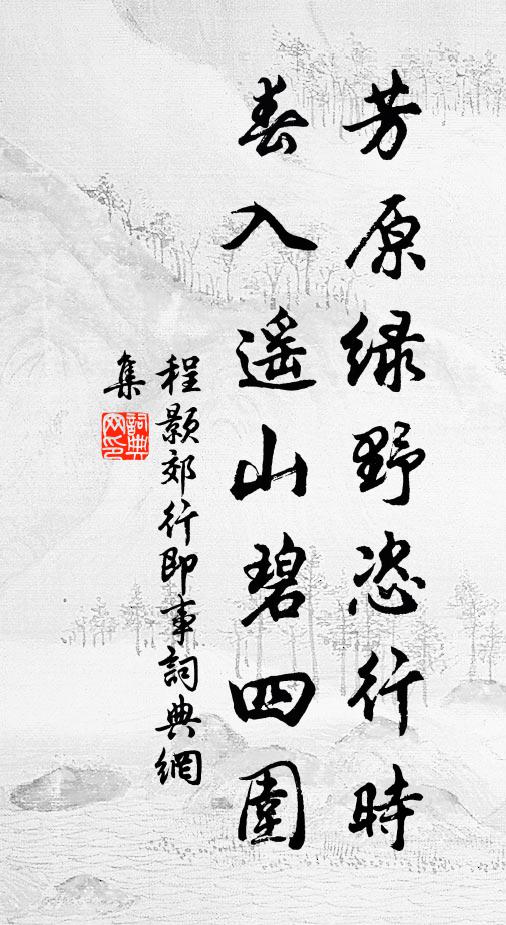 芳原绿野恣行時
春入遥山碧四圍
程顥郊行即事詞典網
集
詞典
网印